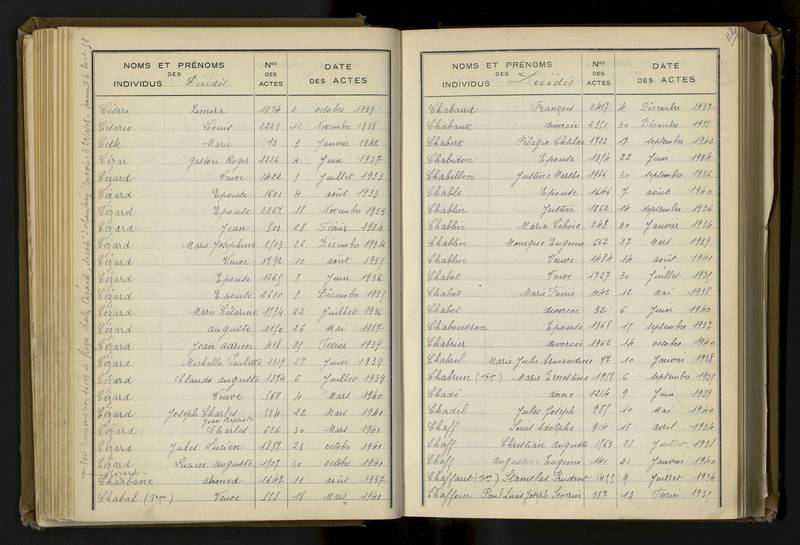 NOMS ET PRÉNOMS DES INDIVIDUS Décédés Nos DES ACTES DATE DES ACTES
Césari Zimira 1874 2 octobre 1939
Césario Louis 2229 12 Novembre 1938
Ceth Marie 13 3 Janvier 1942
Cézar Gaston Roger 1226 4 Juin 1937
Cézard Veuve 1422 3 Juillet 1933
Cézard Epouse 1601 4 août 1933
Cézard Epouse 2267 18 Novembre 1933
Cézard Jean 501 28 Février 1934
Cézard Marie Joséphine 2503 26 Décembre 1934
Cézard Veuve 1792 10 août 1935
Cézard Epouse 1265 8 Juin 1936
Cézard Epouse 2610 8 Décembre 1935
Cézard Marie Césarine 1554 22 Juillet 1936
Cézard auguste 1150 26 Mai 1937
Cézard Jean adrien 418 25 Février 1939
Cézard Michelle Paulette 1319 27 Juin 1939
Cézard Claude auguste 1374 6 Juillet 1939
Cézard Veuve 568 4 Mars 1940
Cézard Joseph Charles Jean Baptiste 584 22 Mars 1941
Cézard Charles 626 30 Mars 1941
Cézard Jules Lucien 1857 23 octobre 1941
Cézard Lucien auguste 1907 30 octobre 1941
Chaabane ahmed 1647 11 août 1937
Chabal Veuve 558 18 Mars 1941
NOMS ET PRÉNOMS DES INDIVIDUS Décédés Nos DES ACTES DATE DES ACTES
Chabaud François 2417 4 Décembre 1937
Chabaux divorcée 2551 30 Décembre 1938
Chabers Pélagie Clotilde 1722 17 septembre 1942
Chabidon Epouse 1354 22 Juin 1934
Chabillon Justine Marthe 1966 30 septembre 1936
Chable Epouse 1646 7 août 1940
Chablin Justin 1862 14 septembre 1936
Chablin Maria Céline 248 30 Janvier 1934
Chablin Monique Eugenie 662 27 Mars 1939
Chablin Veuve 1484 14 août 1941
Chabot Veuve 1727 30 Juillet 1935
Chabot Marie 1042 12 Mai 1938
Chabot divorcée 32 6 Juin 1940
Chabousson Epouse 1868 15 septembre 1937
Chabrier divorcée 1962 14 octobre 1940
Chabrol Marie Julie Armandine 77 10 Janvier 1938
Chabrun Marie Ernestine 1958 6 septembre 1935
Chadé anne 1214 9 Juin 1939
Chadel Jules Joseph 985 10 Mai 1940
Chaff Louis Adolphe 914 18 avril 1934
Chaff Christian auguste 1563 28 Juillet 1938
Chaff augustine Eugenie 141 21 Janvier 1940
Chaffaut Stanislas Prudent 1433 9 Juillet 1934
Chaffoin Paul Louis Joseph Séverin 337 13 Février 1935